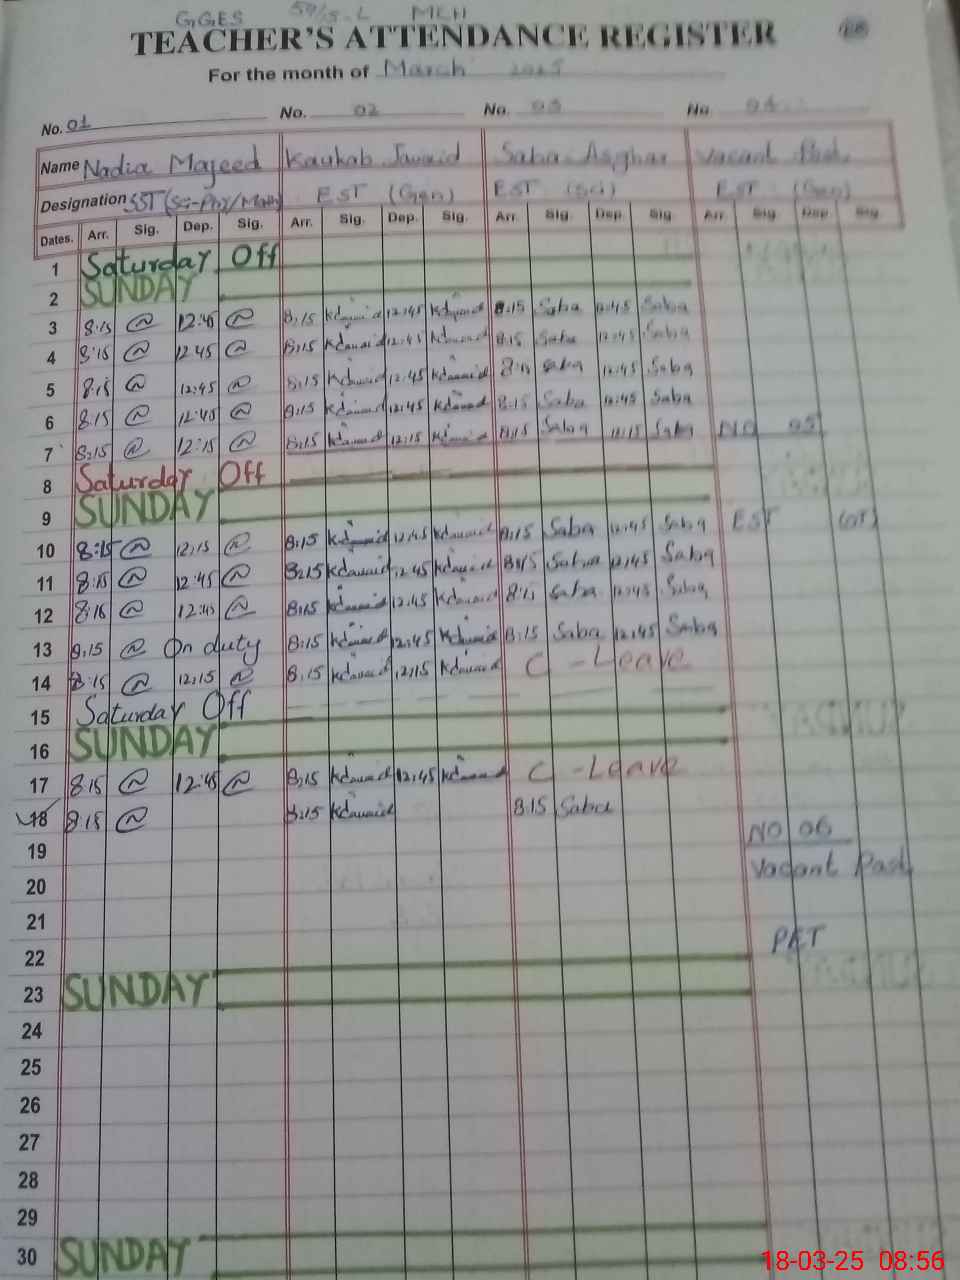 GGES 59/15-L MCH
TEACHER'S ATTENDANCE REGISTER
For the month of March 2025
No. 01 No. 02 No. 03 No. 04
Name Nadia Majeed Kaukab Javaid Saba Asghar Vacant Post
Designation SST (Sci-Phy/Math) EST (Gen) EST (Sci) EST (Gen)
Dates. Arr. Sig. Dep. Sig. Arr. Sig. Dep. Sig. Arr. Sig. Dep. Sig. Arr. Sig. Dep. Sig.
1 Saturday Off
2 SUNDAY
3 8:15 12:45 8:15 KJavaid 12:45 KJavaid 8:15 Saba 12:45 Saba
4 8:15 12:45 8:15 KJavaid 12:45 KJavaid 8:15 Saba 12:45 Saba
5 8:15 12:45 8:15 KJavaid 12:45 KJavaid 8:15 Saba 12:45 Saba
6 8:15 12:45 8:15 KJavaid 12:45 KJavaid 8:15 Saba 12:45 Saba
7 8:15 12:15 8:15 KJavaid 12:15 KJavaid 8:15 Saba 12:15 Saba NO 05
8 Saturday Off
9 SUNDAY
10 8:15 12:15 8:15 KJavaid 12:45 KJavaid 8:15 Saba 12:45 Saba EST
11 8:15 12:45 8:15 KJavaid 12:45 KJavaid 8:15 Saba 12:45 Saba
12 8:15 12:45 8:15 KJavaid 12:45 KJavaid 8:15 Saba 12:45 Saba
13 8:15 On duty 8:15 KJavaid 12:45 KJavaid 8:15 Saba 12:45 Saba
14 8:15 12:15 8:15 KJavaid 12:15 KJavaid C-Leave
15 Saturday Off
16 SUNDAY
17 8:15 12:45 8:15 KJavaid 12:45 KJavaid C-Leave
18 8:15 8:15 KJavaid 8:15 Saba
19 NO 06
20 Vacant Post
21
22 PET
23 SUNDAY
24
25
26
27
28
29
30 SUNDAY
18-03-25 08:56